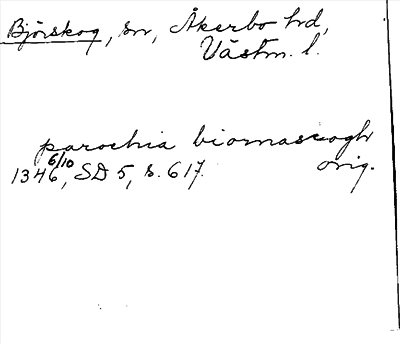 Björskog, sn, Åkerbo hd,
Västm. l.
parochia biornascoghr
1346 6/10, SD 5, s. 617. orig.